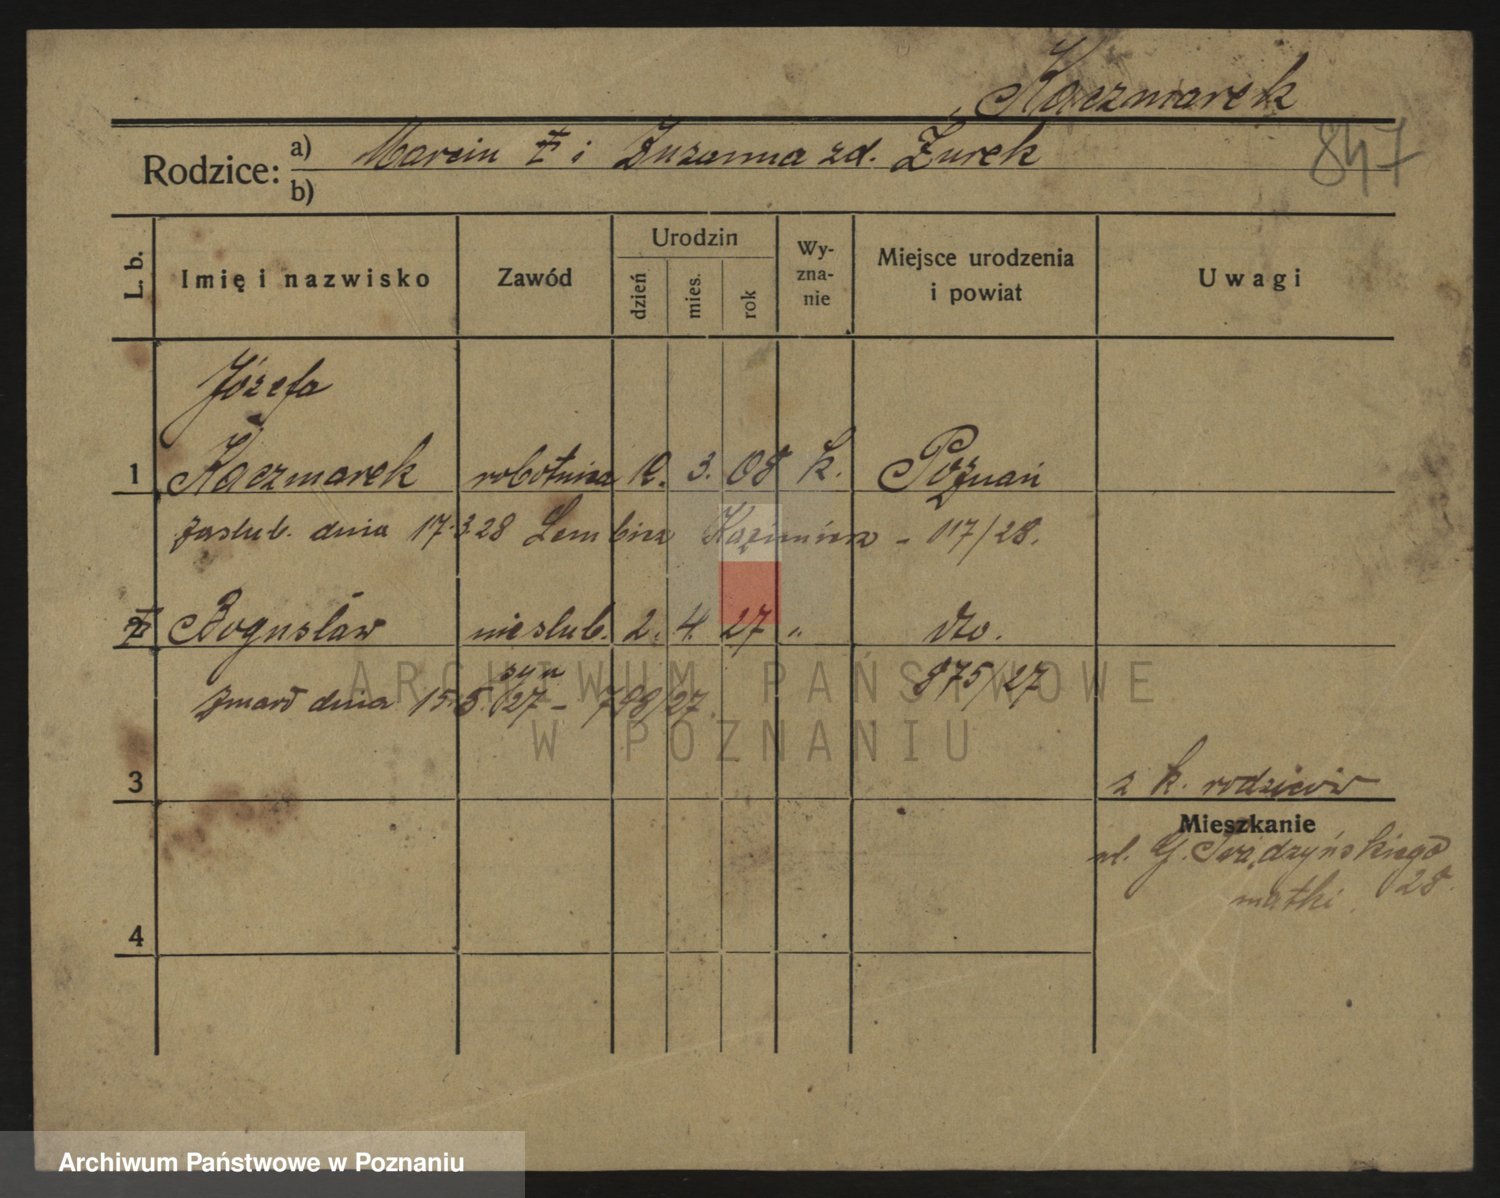 Kaczmarek
847
Rodzice: a) Marcin ‡ i Zuzanna zd. Żurek
b)
L. b. Imię i nazwisko Zawód Urodzin dzień mies. rok Wyznanie Miejsce urodzenia i powiat Uwagi
Józefa
1 Kaczmarek robotnica 12. 3. 08 k. Poznań
zaślub. dnia 17.3.28 Lembicz Kazimierz - 117/28.
2 Bogusław nieślub. 2. 4. 27 " dto.
syn 875/27
zmarł dnia 15.5.27 - 798/27
3 z k. rodziców
Mieszkanie
ul. G. Swadzyńskiego
matki 28.
4
ARCHIWUM PAŃSTWOWE
W POZNANIU
Archiwum Państwowe w Poznaniu